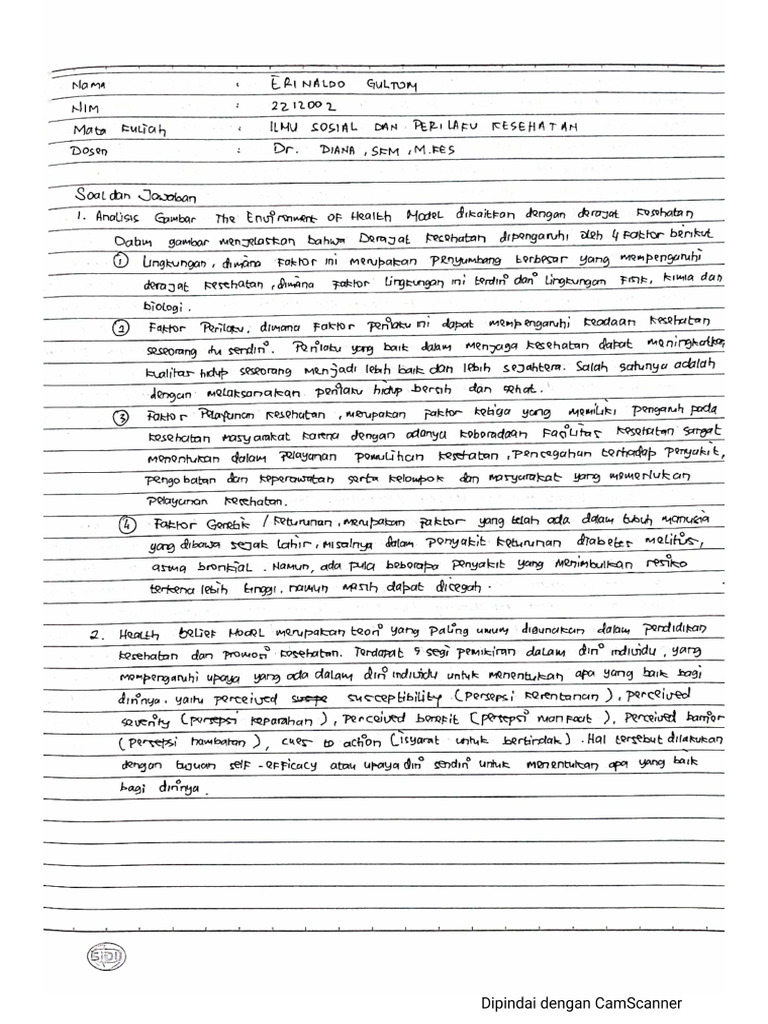 Nama : ERINALDO GULTOM
NIM : 2212002
Mata Kuliah : ILMU SOSIAL DAN PERILAKU KESEHATAN
Dosen : Dr. DIANA, SKM, M.KES
Soal dan Jawaban
1. Analisis Gambar The Environment of Health Model dikaitkan dengan derajat Kesehatan
Dalam gambar menjelaskan bahwa Derajat Kesehatan dipengaruhi oleh 4 faktor berikut
① Lingkungan, dimana Faktor ini merupakan Penyumbang terbesar yang mempengaruhi
derajat kesehatan, dimana Faktor Lingkungan ini terdiri dari Lingkungan Fisik, kimia dan
biologi.
② Faktor Perilaku, dimana Faktor Perilaku ini dapat mempengaruhi keadaan kesehatan
seseorang itu sendiri. Perilaku yang baik dalam menjaga kesehatan dapat meningkatkan
kualitas hidup seseorang menjadi lebih baik dan lebih sejahtera. Salah satunya adalah
dengan melaksanakan perilaku hidup bersih dan sehat.
③ Faktor Pelayanan Kesehatan, merupakan faktor ketiga yang memiliki pengaruh pada
kesehatan masyarakat karena dengan adanya keberadaan Fasilitas kesehatan sangat
menentukan dalam pelayanan pemulihan kesehatan, pencegahan terhadap penyakit,
pengobatan dan keperawatan serta kelompok dan masyarakat yang memerlukan
pelayanan kesehatan.
④ Faktor Genetik / Keturunan, merupakan faktor yang telah ada dalam tubuh manusia
yang dibawa sejak lahir, misalnya dalam penyakit keturunan diabetes melitus,
asma bronkial. Namun, ada pula beberapa penyakit yang menimbulkan resiko
terkena lebih tinggi, namun masih dapat dicegah.
2. Health belief Model merupakan teori yang paling umum digunakan dalam pendidikan
kesehatan dan promosi kesehatan. Terdapat 5 segi pemikiran dalam diri individu, yang
mempengaruhi upaya yang ada dalam diri individu untuk menentukan apa yang baik bagi
dirinya. yaitu perceived susceptibility (persepsi kerentanan), perceived
severity (persepsi keparahan), perceived benefit (persepsi manfaat), perceived barrier
(persepsi hambatan), cues to action (isyarat untuk bertindak). Hal tersebut dilakukan
dengan tujuan self-efficacy atau upaya diri sendiri untuk menentukan apa yang baik
bagi dirinya.
SIDU
Dipindai dengan CamScanner